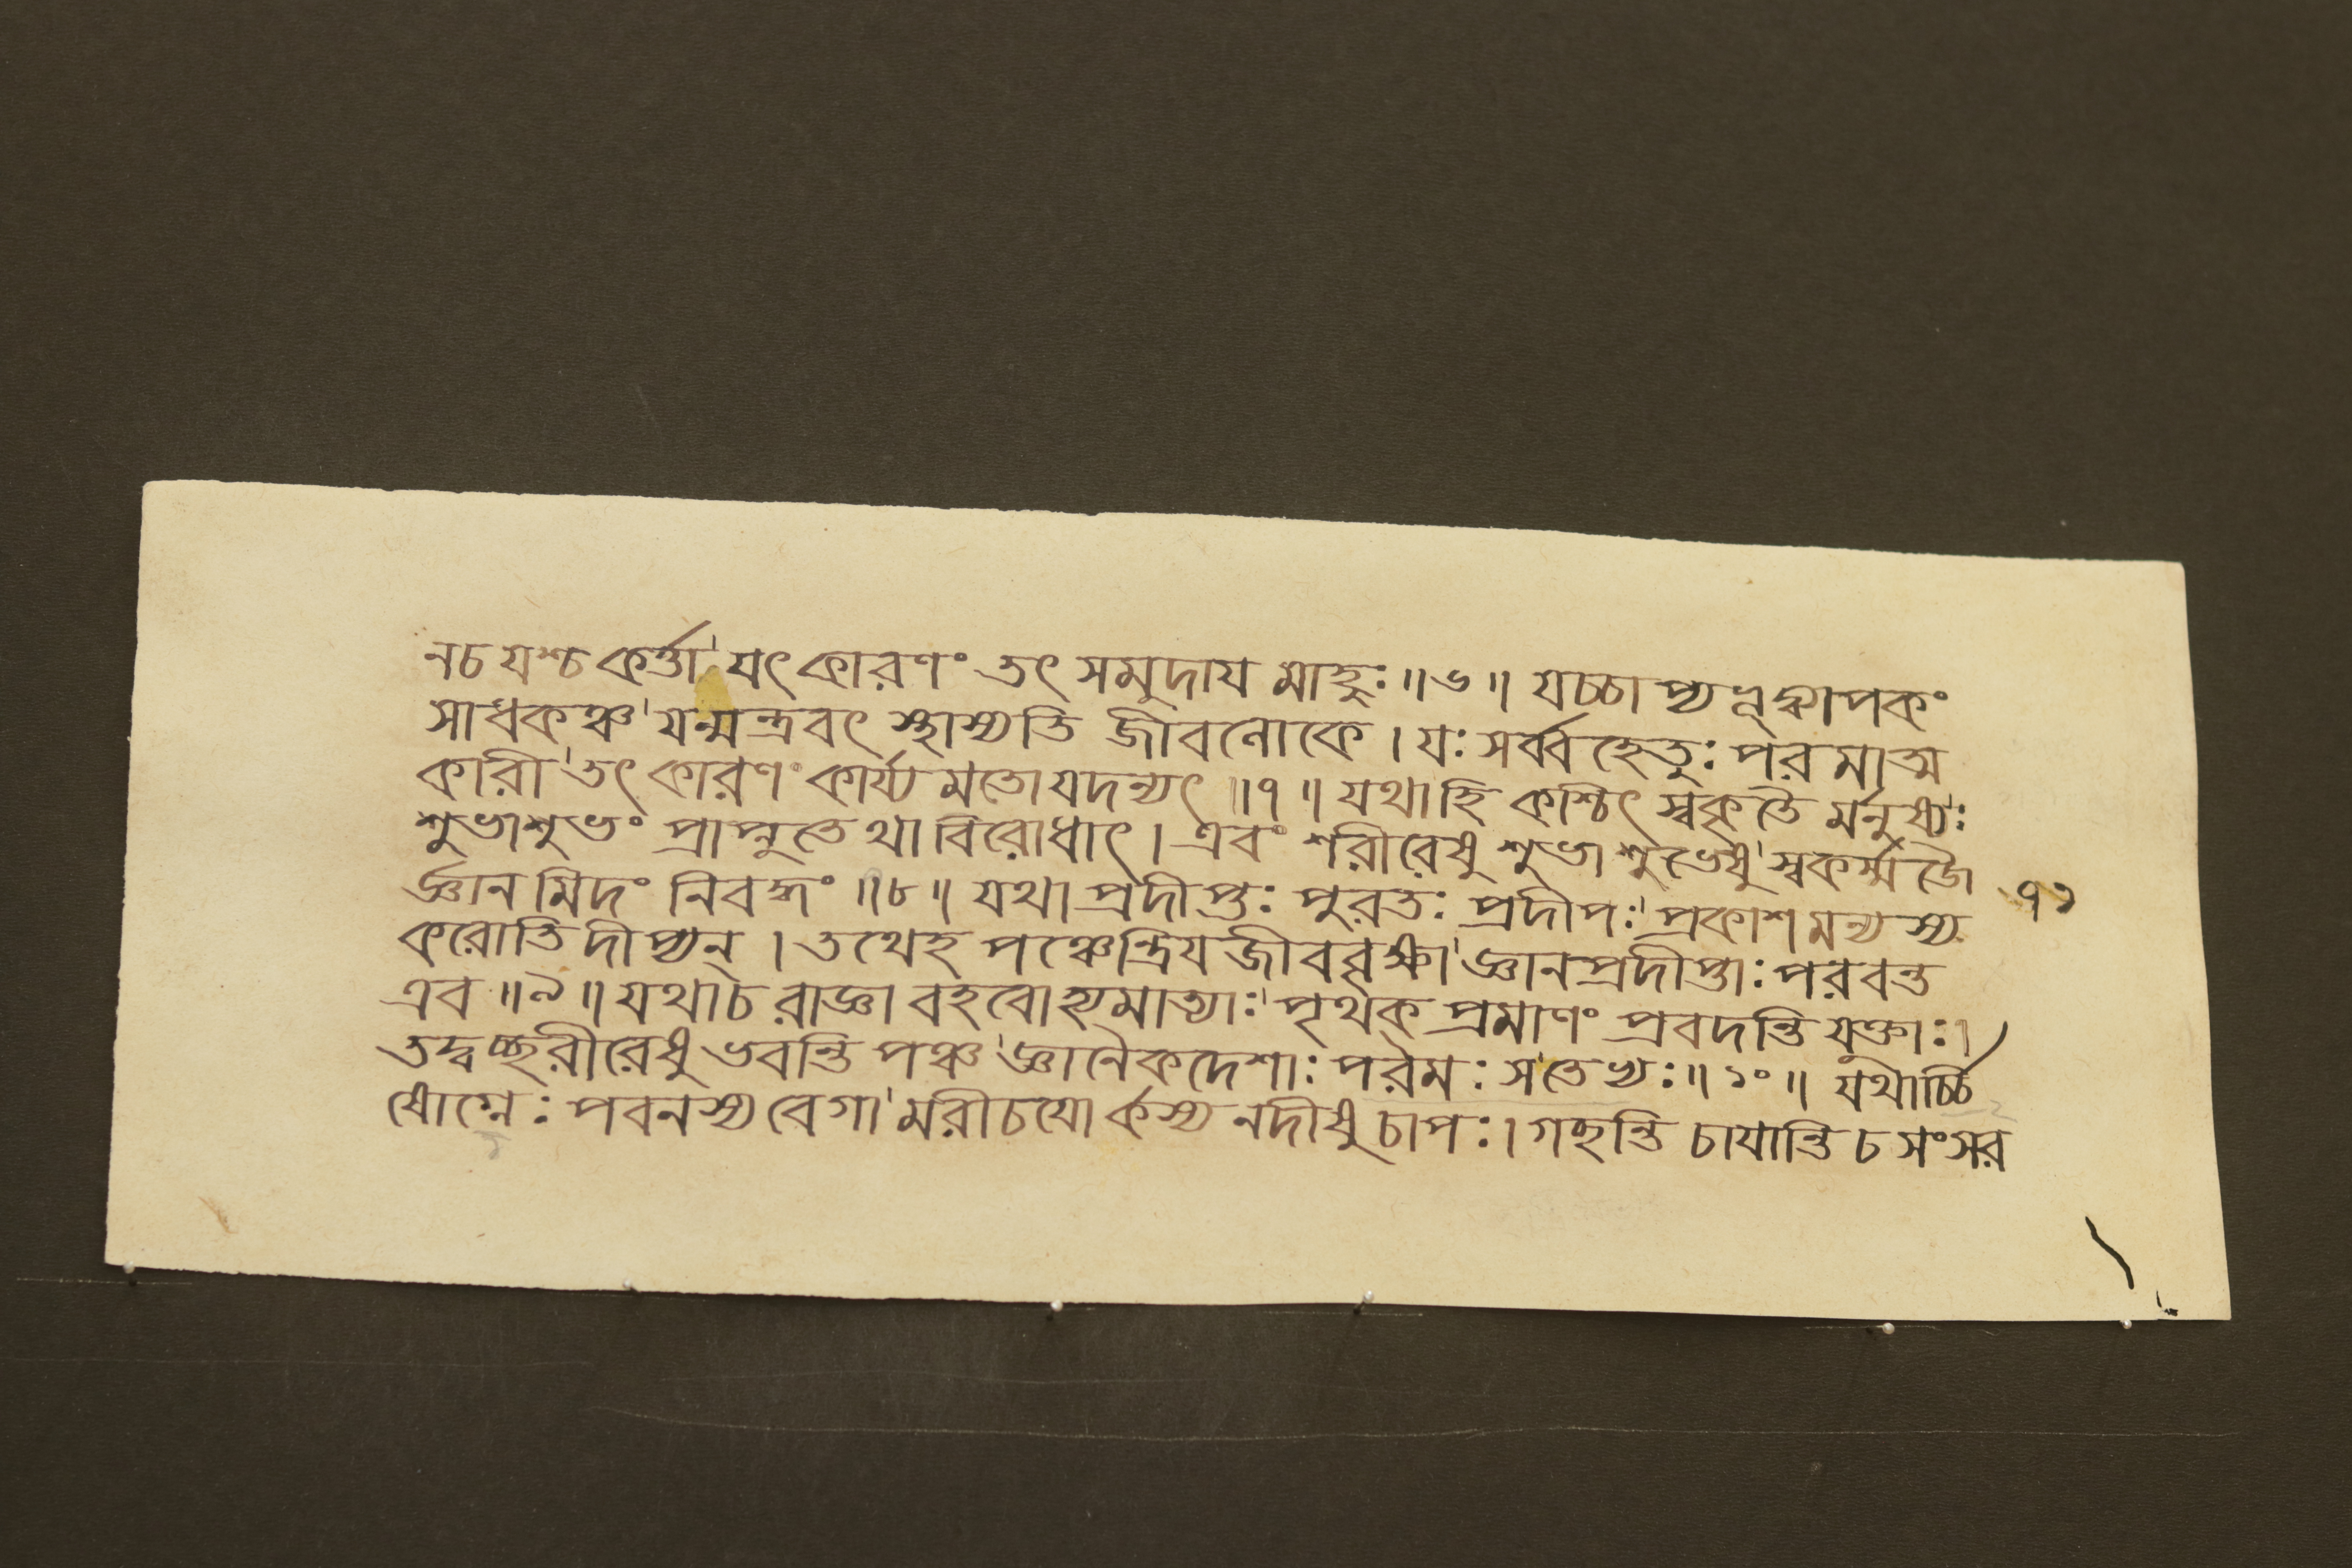 ন চ যশ্চ কর্ত্তা যৎ কারণং তৎ সমুদায মাহুঃ ॥ ৬ ॥ যচ্চা প্য ব্যাপকং
সাধকঞ্চ যন্মন্ত্রবৎ স্থাস্যতি জীবলোকে । যঃ সর্ব্ব হেতুঃ পরমাত্ম
কারী তৎ কারণং কার্য্য মতো যদন্যৎ ॥ ৭ ॥ যথা হি কশ্চিৎ স্বকৃতৈ র্মনুষ্যঃ
শুভাশুভং প্রাপ্নুতে থা বিরোধাৎ । এবং শরীরেষু শুভাশুভেষু স্বকর্ম্ম জৈ
র্জ্ঞান মিদং নিবদ্ধং ॥ ৮ ॥ যথা প্রদীপ্তঃ পুরতঃ প্রদীপঃ প্রকাশ মন্যস্য ৭১
করোতি দীপ্যন্ । তথেহ পঞ্চেন্দ্রিয জীববৃক্ষা জ্ঞানপ্রদীপ্তাঃ পরবন্ত
এব ॥ ৯ ॥ যথা চ রাজ্ঞা বহবো হ্যমাত্যাঃ পৃথক প্রমাণং প্রবদন্তি যুক্তাঃ ।
তদ্বচ্ছরীরেষু ভবন্তি পঞ্চ জ্ঞানৈকদেশাঃ পরমঃ স তেভ্যঃ ॥ ১০ ॥ যথার্চ্চি
ষোগ্নেঃ পবনস্য বেগা মরীচযো র্কস্য নদীষু চাপঃ । গচ্ছন্তি চাযান্তি চ সংসর